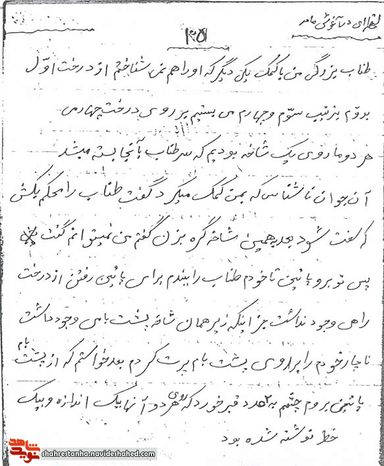 لحظه‌ای در آغوش مادر
۱۳۵
طناب بزرگی من با کمک یکی دیگر که او را هم نمی‌شناختم از درخت اوّل
بدوّم بترتیب سوّم و چهارم می بستیم بر روی درخت چهارمی
هر دو ما روی یک شاخه بودیم که سر طناب بآنجا بسته میشد
آن جوان ناشناس که بمن کمک میکرد گفت طناب را محکم بکش
که سفت شود بعد بهمین شاخه گره بزن گفتم من نمیتوانم گفت
پس تو برو پائین تا خودم طناب را ببندم برای پائین رفتن از درخت
راهی وجود نداشت جز اینکه زیر همان شاخه پشت بامی وجود داشت
ناچار خودم را بر روی پشت بام پرت کردم بعد خواستم که از پشت بام
پائین بروم چشمم به دو قبر خورد که روی هر دو آنها یک اندازه و بیک
خط نوشته شده بود
shahrestanha.navideshahed.com